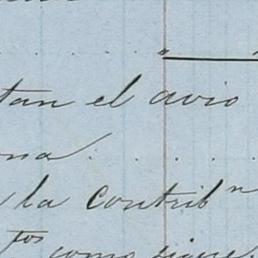 tan el avio
na . . . . .
la contrib^n
tos como sigue